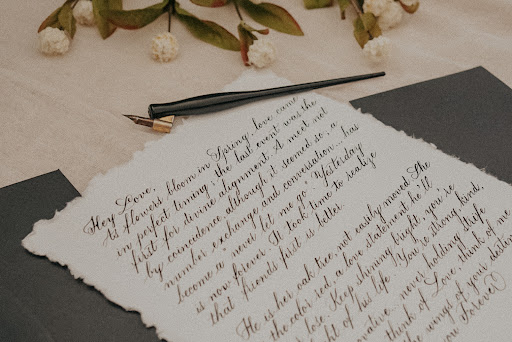 Hey Love,
As flowers bloom in Spring, love came
in perfect timing. the last event was the
first for divine alignment. A meet not
by coincidence although it seemed so, a
number exchange and conversation... has
become a "never let me go". Yesterday
is now forever. It took time to realize
that friends first is better.
He is her oak tree, not easily moved. She
the color red, a love statement he'll
lose. Keep shining bright, you're
ht of his life. You're strong, kind,
ovative... never holding strife
think of Love, think of me
the wings of your destin
you Forever